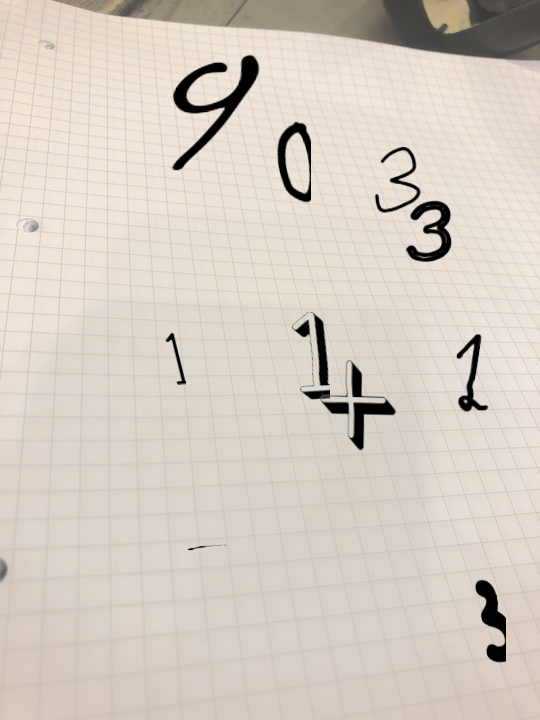 9 0 3 3
1 1 + 1
-
3